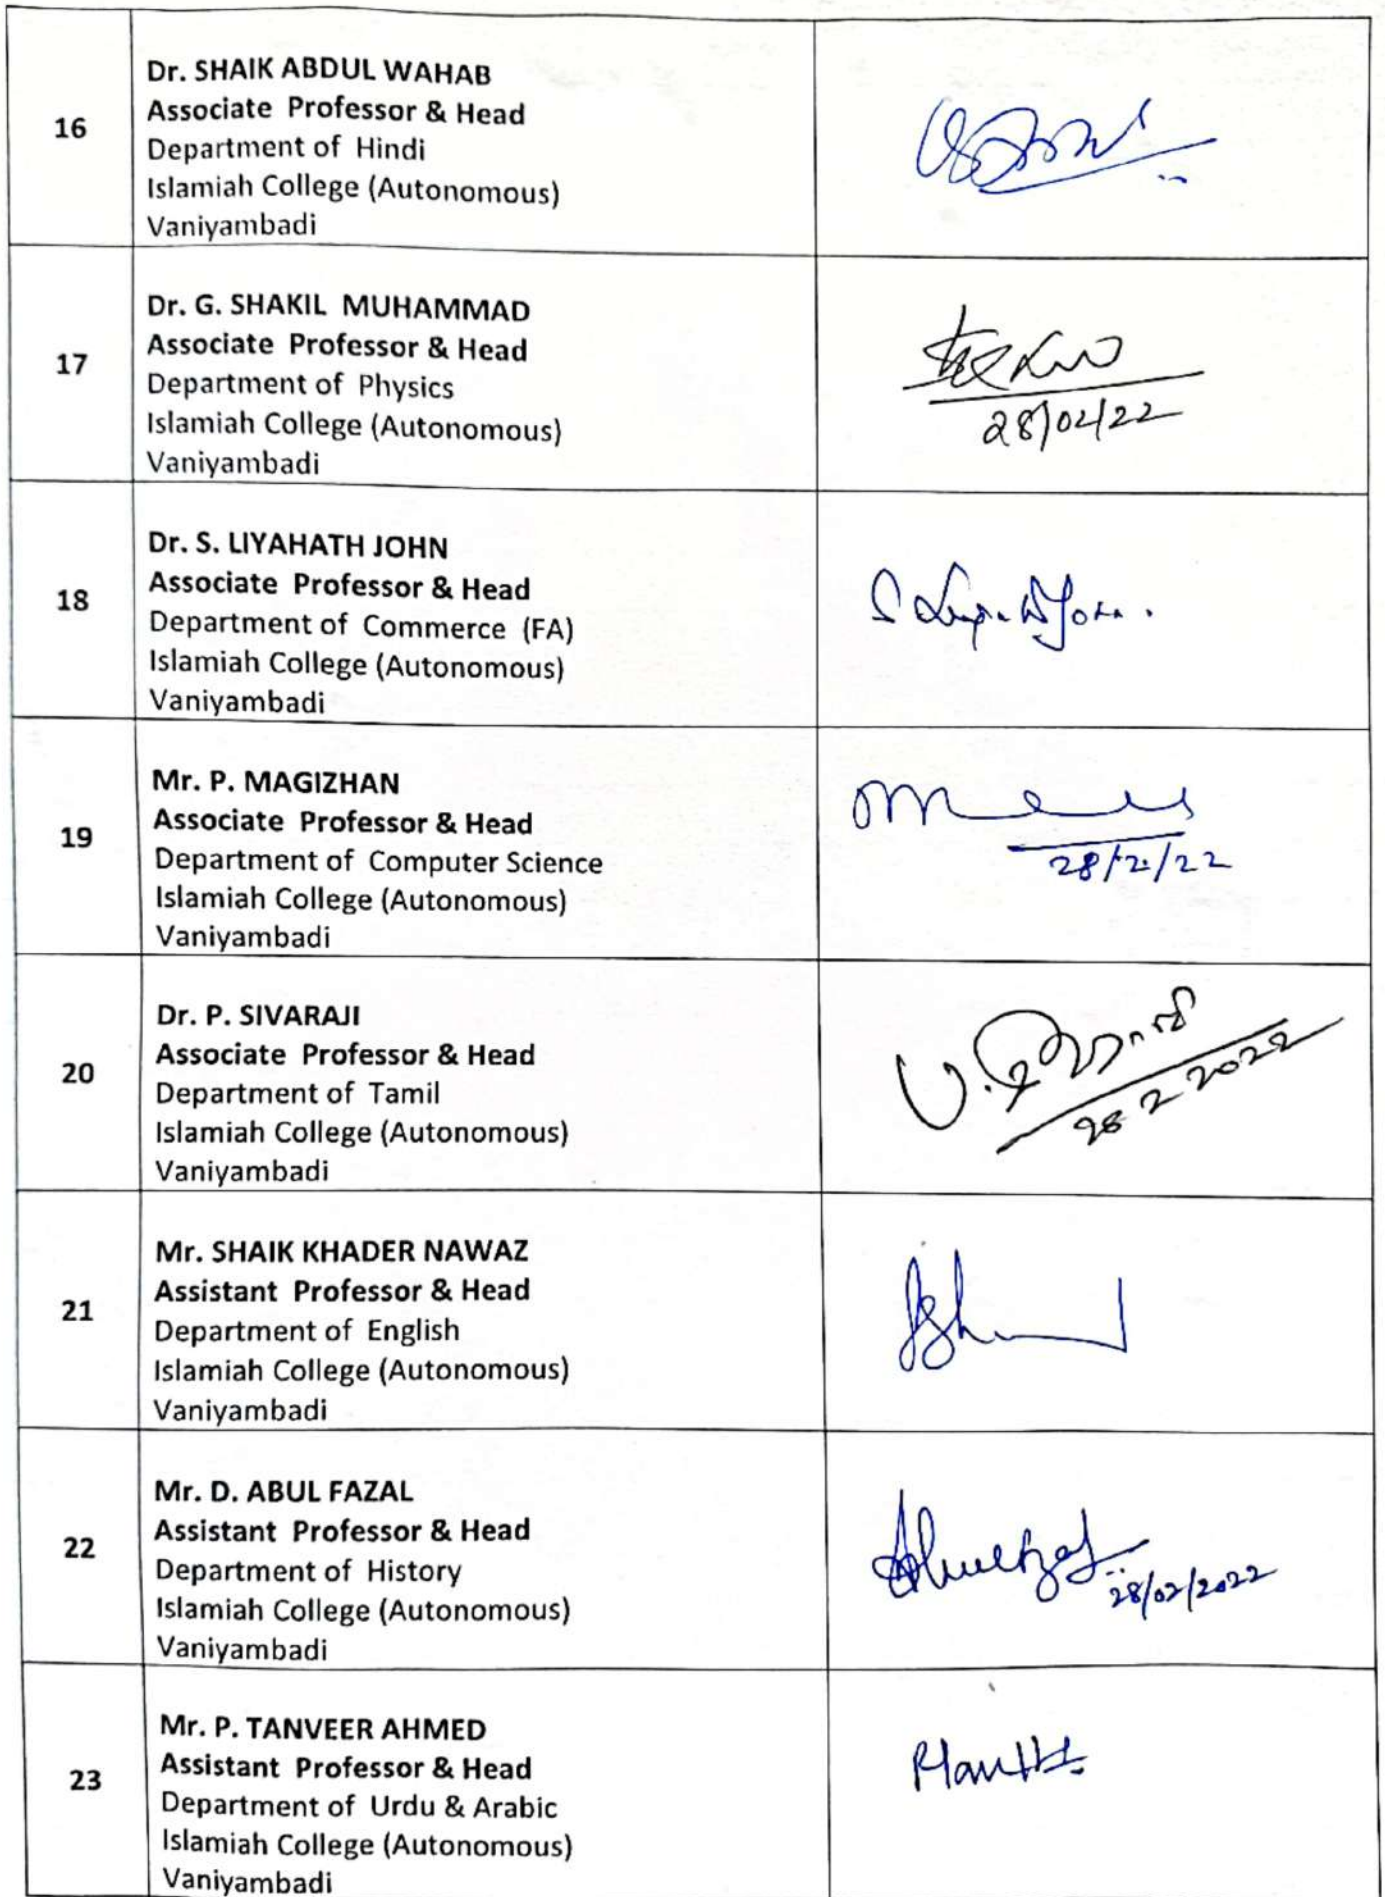 16
Dr. SHAIK ABDUL WAHAB
Associate Professor & Head
Department of Hindi
Islamiah College (Autonomous)
Vaniyambadi
17
Dr. G. SHAKIL MUHAMMAD
Associate Professor & Head
Department of Physics
Islamiah College (Autonomous)
Vaniyambadi
28/02/22
18
Dr. S. LIYAHATH JOHN
Associate Professor & Head
Department of Commerce (FA)
Islamiah College (Autonomous)
Vaniyambadi
19
Mr. P. MAGIZHAN
Associate Professor & Head
Department of Computer Science
Islamiah College (Autonomous)
Vaniyambadi
28/2/22
20
Dr. P. SIVARAJI
Associate Professor & Head
Department of Tamil
Islamiah College (Autonomous)
Vaniyambadi
28 2 2022
21
Mr. SHAIK KHADER NAWAZ
Assistant Professor & Head
Department of English
Islamiah College (Autonomous)
Vaniyambadi
22
Mr. D. ABUL FAZAL
Assistant Professor & Head
Department of History
Islamiah College (Autonomous)
Vaniyambadi
28/02/2022
23
Mr. P. TANVEER AHMED
Assistant Professor & Head
Department of Urdu & Arabic
Islamiah College (Autonomous)
Vaniyambadi